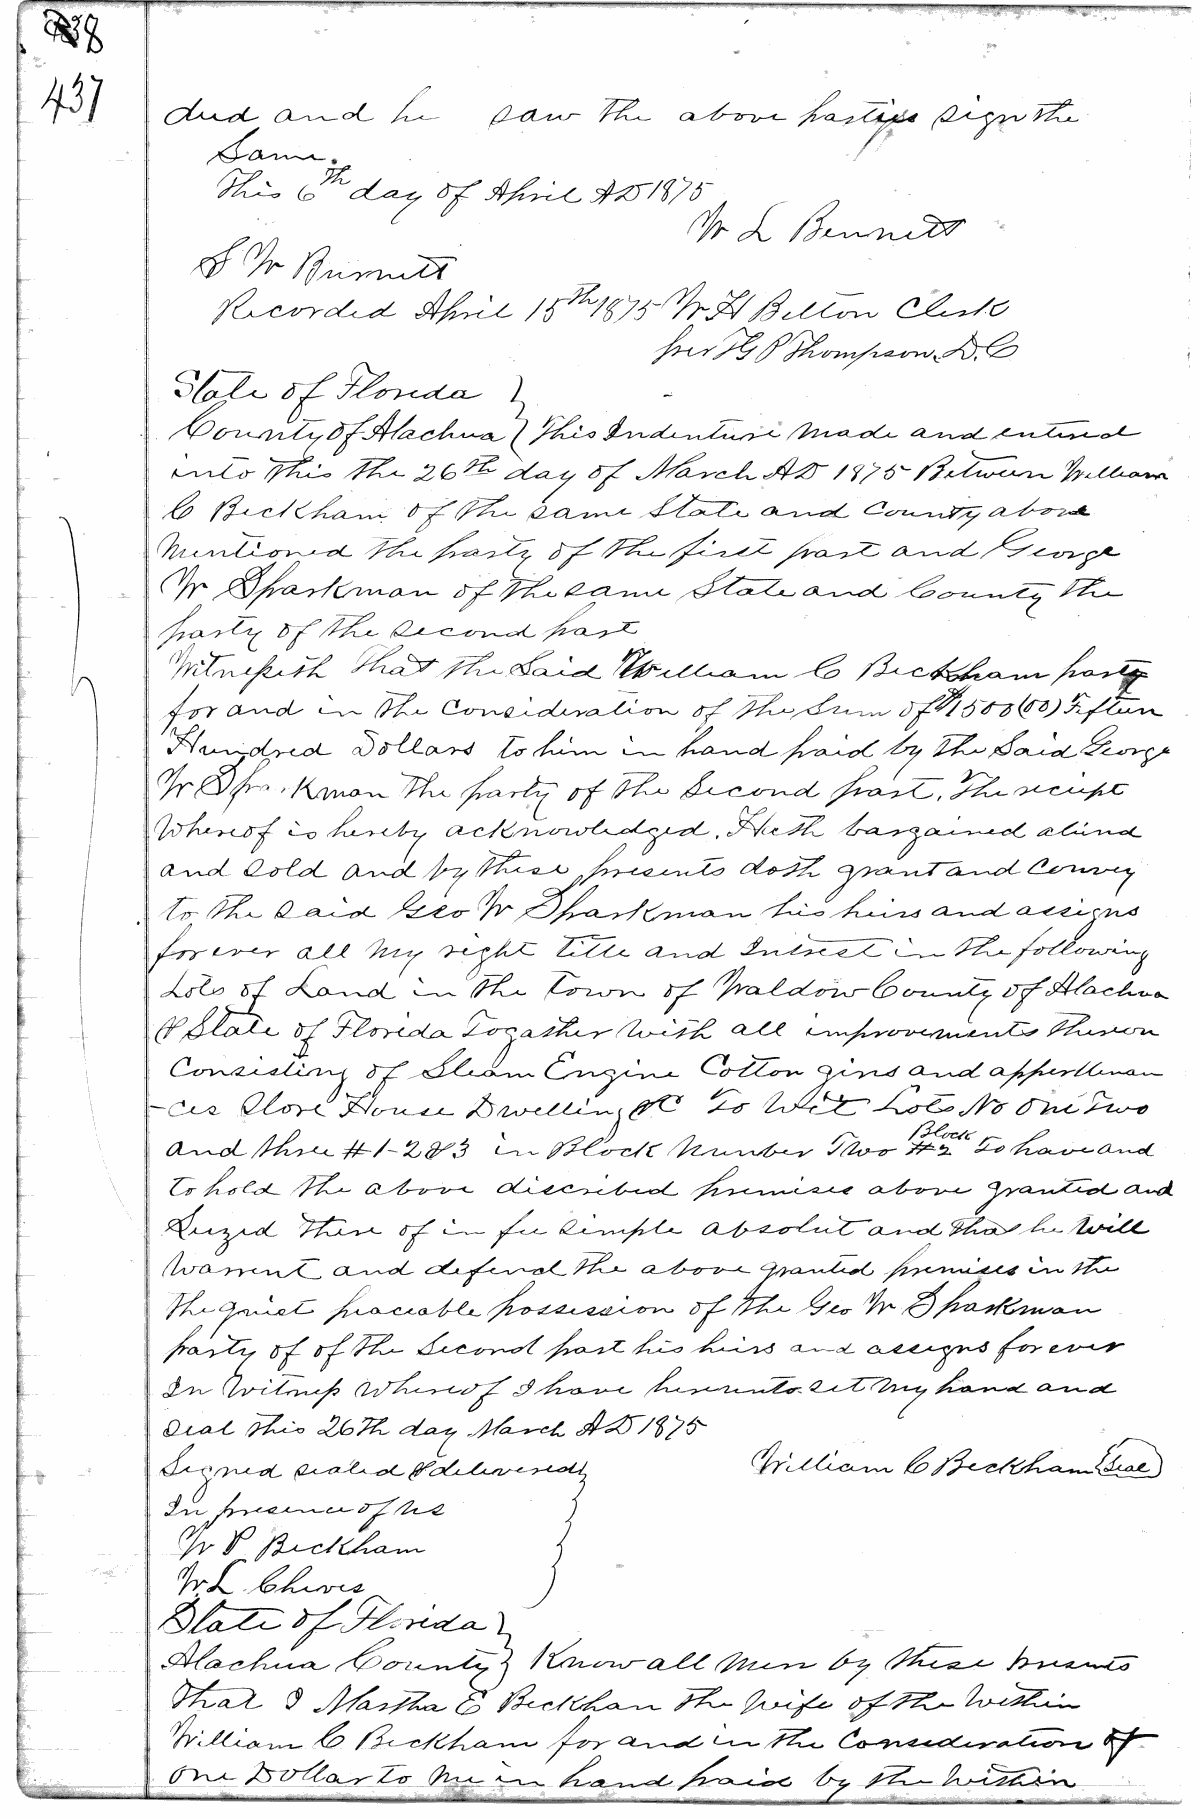 438
437
deed and he saw the above parties sign the
Same.
This 6th day of April AD 1875
W L Bennett
S W Burnett
Recorded April 15th 1875 W H Belton Clerk
per H G P Thompson. D. C
State of Florida }
County of Alachua } This Indenture made and entered
into this the 26th day of March AD 1875 Between William
C Beckham of the same State and County above
mentioned the party of the first part and George
W Sparkman of the same State and County the
party of the second part
Witnesseth that the Said William C Beckham party
for and in the Consideration of the Sum of $1500 (00) Fifteen
Hundred Dollars to him in hand paid by the Said George
W Sparkman the party of the Second part. The reciept
Whereof is hereby acknowledged. Hath bargained aliend
and sold and by these presents doth grant and convey
to the said Geo W Sparkman his heirs and assigns
forever all my right title and Intrest in the following
Lots of Land in the town of Waldow County of Alachua
& State of Florida Togather with all improvements thereon
Consisting of Steam Engine Cotton gins and apperttenan
-ces Store House Dwelling &C To Wit Lots No One Two
and three #1-2&3 in Block Number Two Block #2 To have and
to hold the above discribed premises above granted and
Seized there of in fee simple absolut and that he will
warrent and defend the above granted premises in the
the quiet peaceable possession of the Geo W Sparkman
party of of the Second part his heirs and assigns forever
In Witness whereof I have hereunto set my hand and
seal this 26th day March AD 1875
Signed sealed & delivered }
William C Beckham (Seal)
In presence of us
W P Beckham
W. L Cheves
State of Florida }
Alachua County } Know all Men by these presents
that I Martha E Beckhan the Wife of the Within
William C Beckham for and in the Consideration of
One Dollar to Me in hand paid by the Within